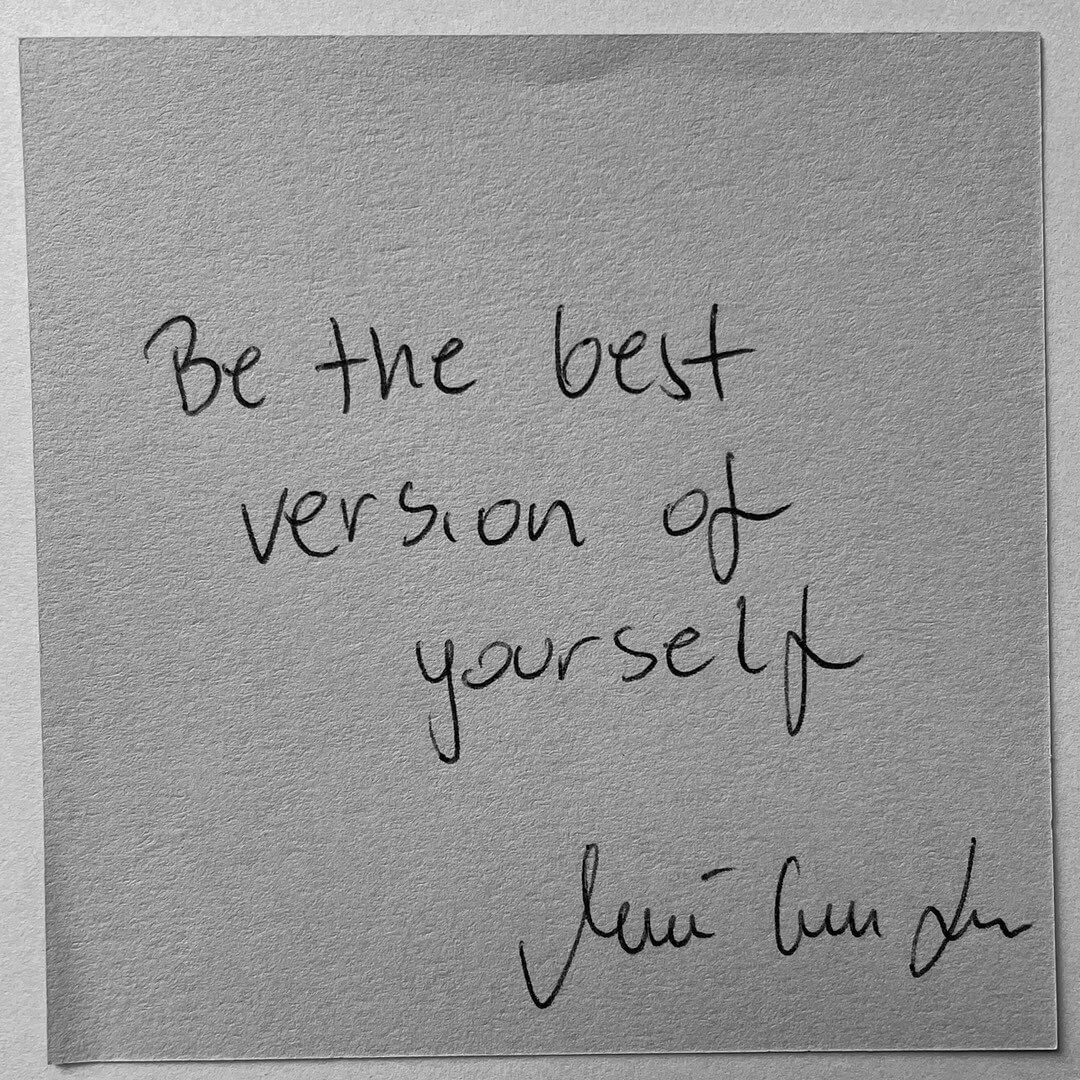 Be the best
version of
yourself